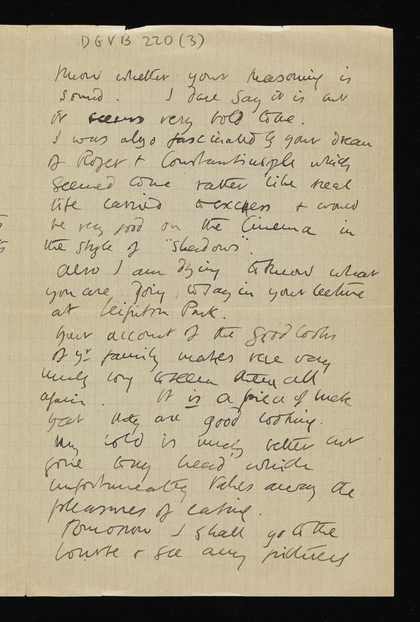 DGVB 220 (3)
know whether your reasoning is
sound. I dare say it is but
it seems very bold to me.
I was also fascinated by your dream
of Roger & Constantinople which
seemed to me rather like real
life carried to excess & would
be very good on the Cinema in
the style of "Shadows".
Also I am dying to know what
you are going to say in your lecture
at Leighton Park.
Your account of the good looks
of yr family makes me very
much long to see them all
again. It is a piece of luck
that they are good looking.
My cold is much better but
gone to my head which
unfortunately takes away the
pleasures of eating.
Tomorrow I shall go to the
Louvre & see any pictures